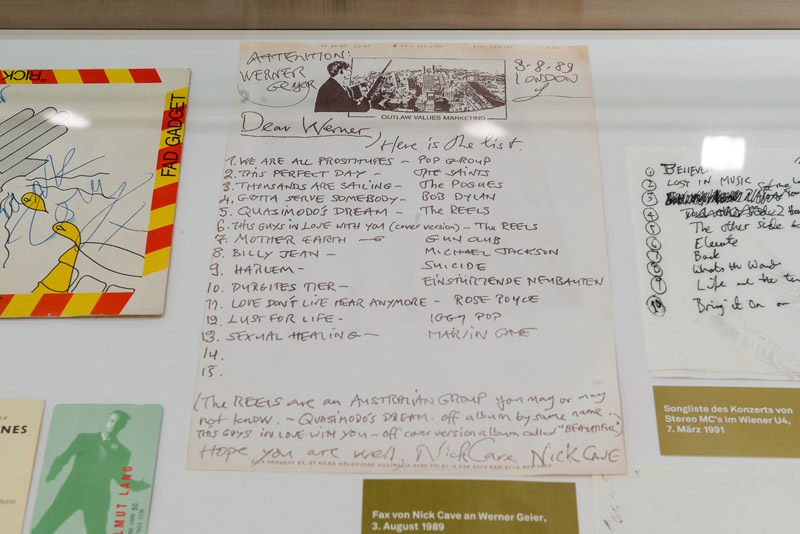 "RICK"
FAD GADGET
ATTENTION:
WERNER
GEIER
3-8-89
LONDON
OUTLAW VALUES MARKETING
Dear Werner,
Here is the list.
1. WE ARE ALL PROSTITUTES – POP GROUP
2. THIS PERFECT DAY – THE SAINTS
3. THOUSANDS ARE SAILING – The POGUES
4. GOTTA SERVE SOMEBODY – BOB DYLAN
5. QUASIMODO'S DREAM – The REELS
6. THIS GUYS IN LOVE WITH YOU (cover version) – The REELS
7. MOTHER EARTH – GUN CLUB
8. BILLY JEAN – MICHAEL JACKSON
9. HARLEM – SUICIDE
10. DURGITES TIER – EINSTURZENDE NEUBAUTEN
11. LOVE DON'T LIVE HEAR ANYMORE – ROSE ROYCE
12. LUST FOR LIFE – IGGY POP
13. SEXUAL HEALING – MARVIN GAYE
14.
15.
(The REELS are an AUSTRALIAN GROUP you may or may
not know. – QUASIMODO'S DREAM. off album by same name.
THIS GUYS IN LOVE WITH YOU – off cover version album called "BEAUTIFUL")
Hope you are well, Nick Cave NICK CAVE
1 BELIEVE
2 LOST IN MUSIC
3
4
5 The other side
6 Elevate
7 Back
8 What's the Word
9 Life and the
10 Bring it On
Songliste des Konzerts von
Stereo MC's im Wiener U4,
7. März 1991
NES
HELMUT LANG
Fax von Nick Cave an Werner Geier,
3. August 1989